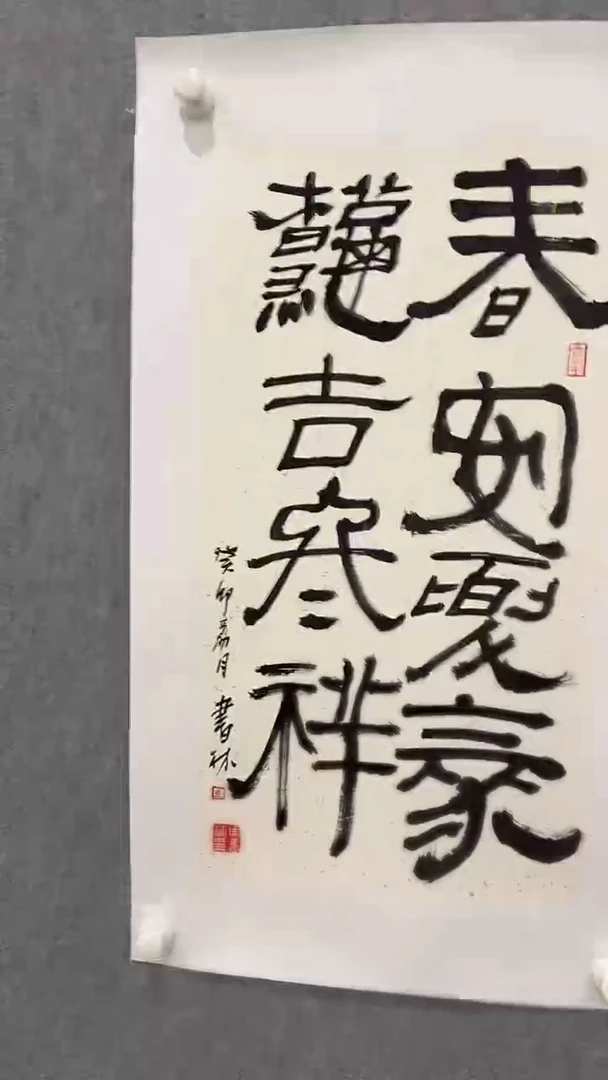 春安夏豪
吉冬祥
癸卯荔月書林